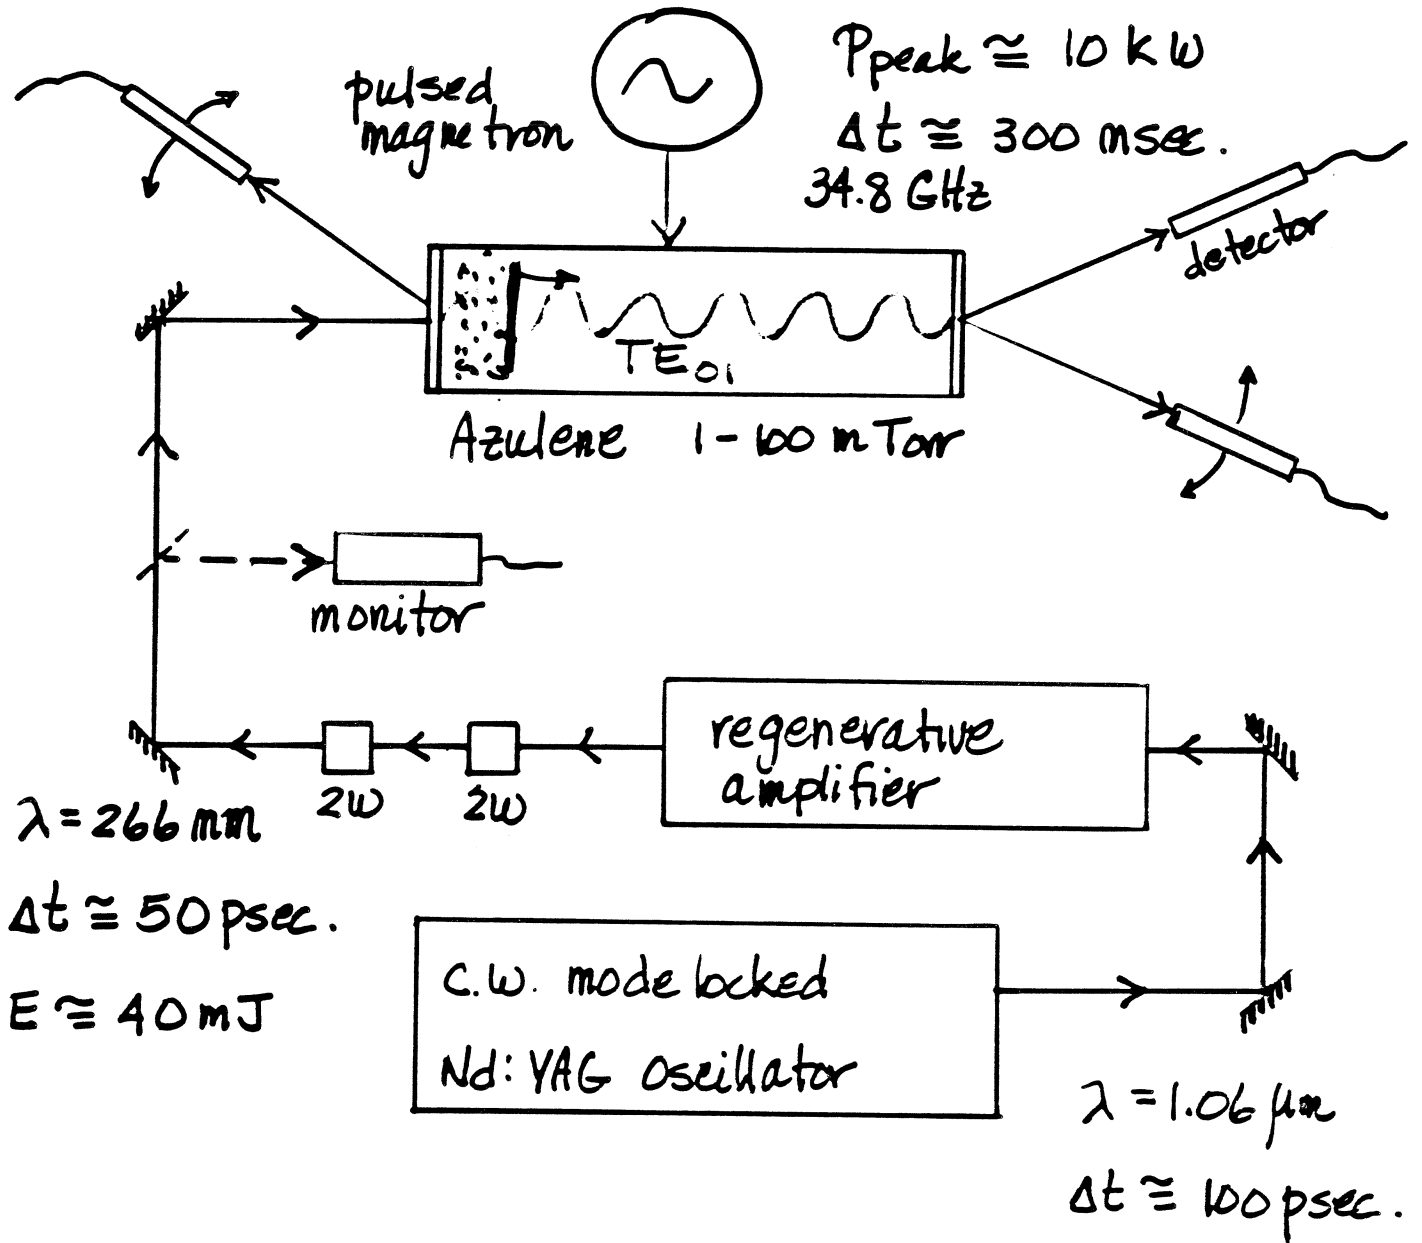 pulsed
magnetron
Ppeak ≅ 10 kW
Δt ≅ 300 nsec.
34.8 GHz
detector
TE₀₁
Azulene 1-100 mTorr
monitor
regenerative
amplifier
2ω 2ω
λ = 266 nm
Δt ≅ 50 psec.
E ≅ 40 mJ
C.W. mode locked
Nd: YAG oscillator
λ = 1.06 μm
Δt ≅ 100 psec.